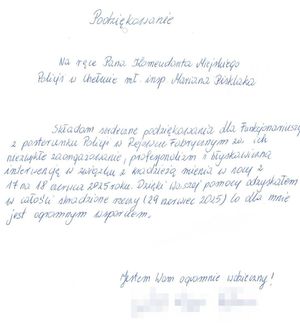 Podziękowanie
Na ręce Pana Komendanta Miejskiego
Policji w Chełmie mł. insp. Mariana
Składam serdeczne podziękowania dla Funkcjonariuszy
z posterunku Policji w Rejowcu Fabrycznym za ich
niezwykłe zaangażowanie, profesjonalizm i błyskawiczną
interwencję w związku z kradzieżą mienia w nocy z
17 na 18 czerwca 2025 roku. Dzięki Waszej pomocy odzyskałem
w całości skradzione rowery (29 2025) to dla mnie
jest ogromnym wsparciem.
Jestem Wam ogromnie wdzięczny!